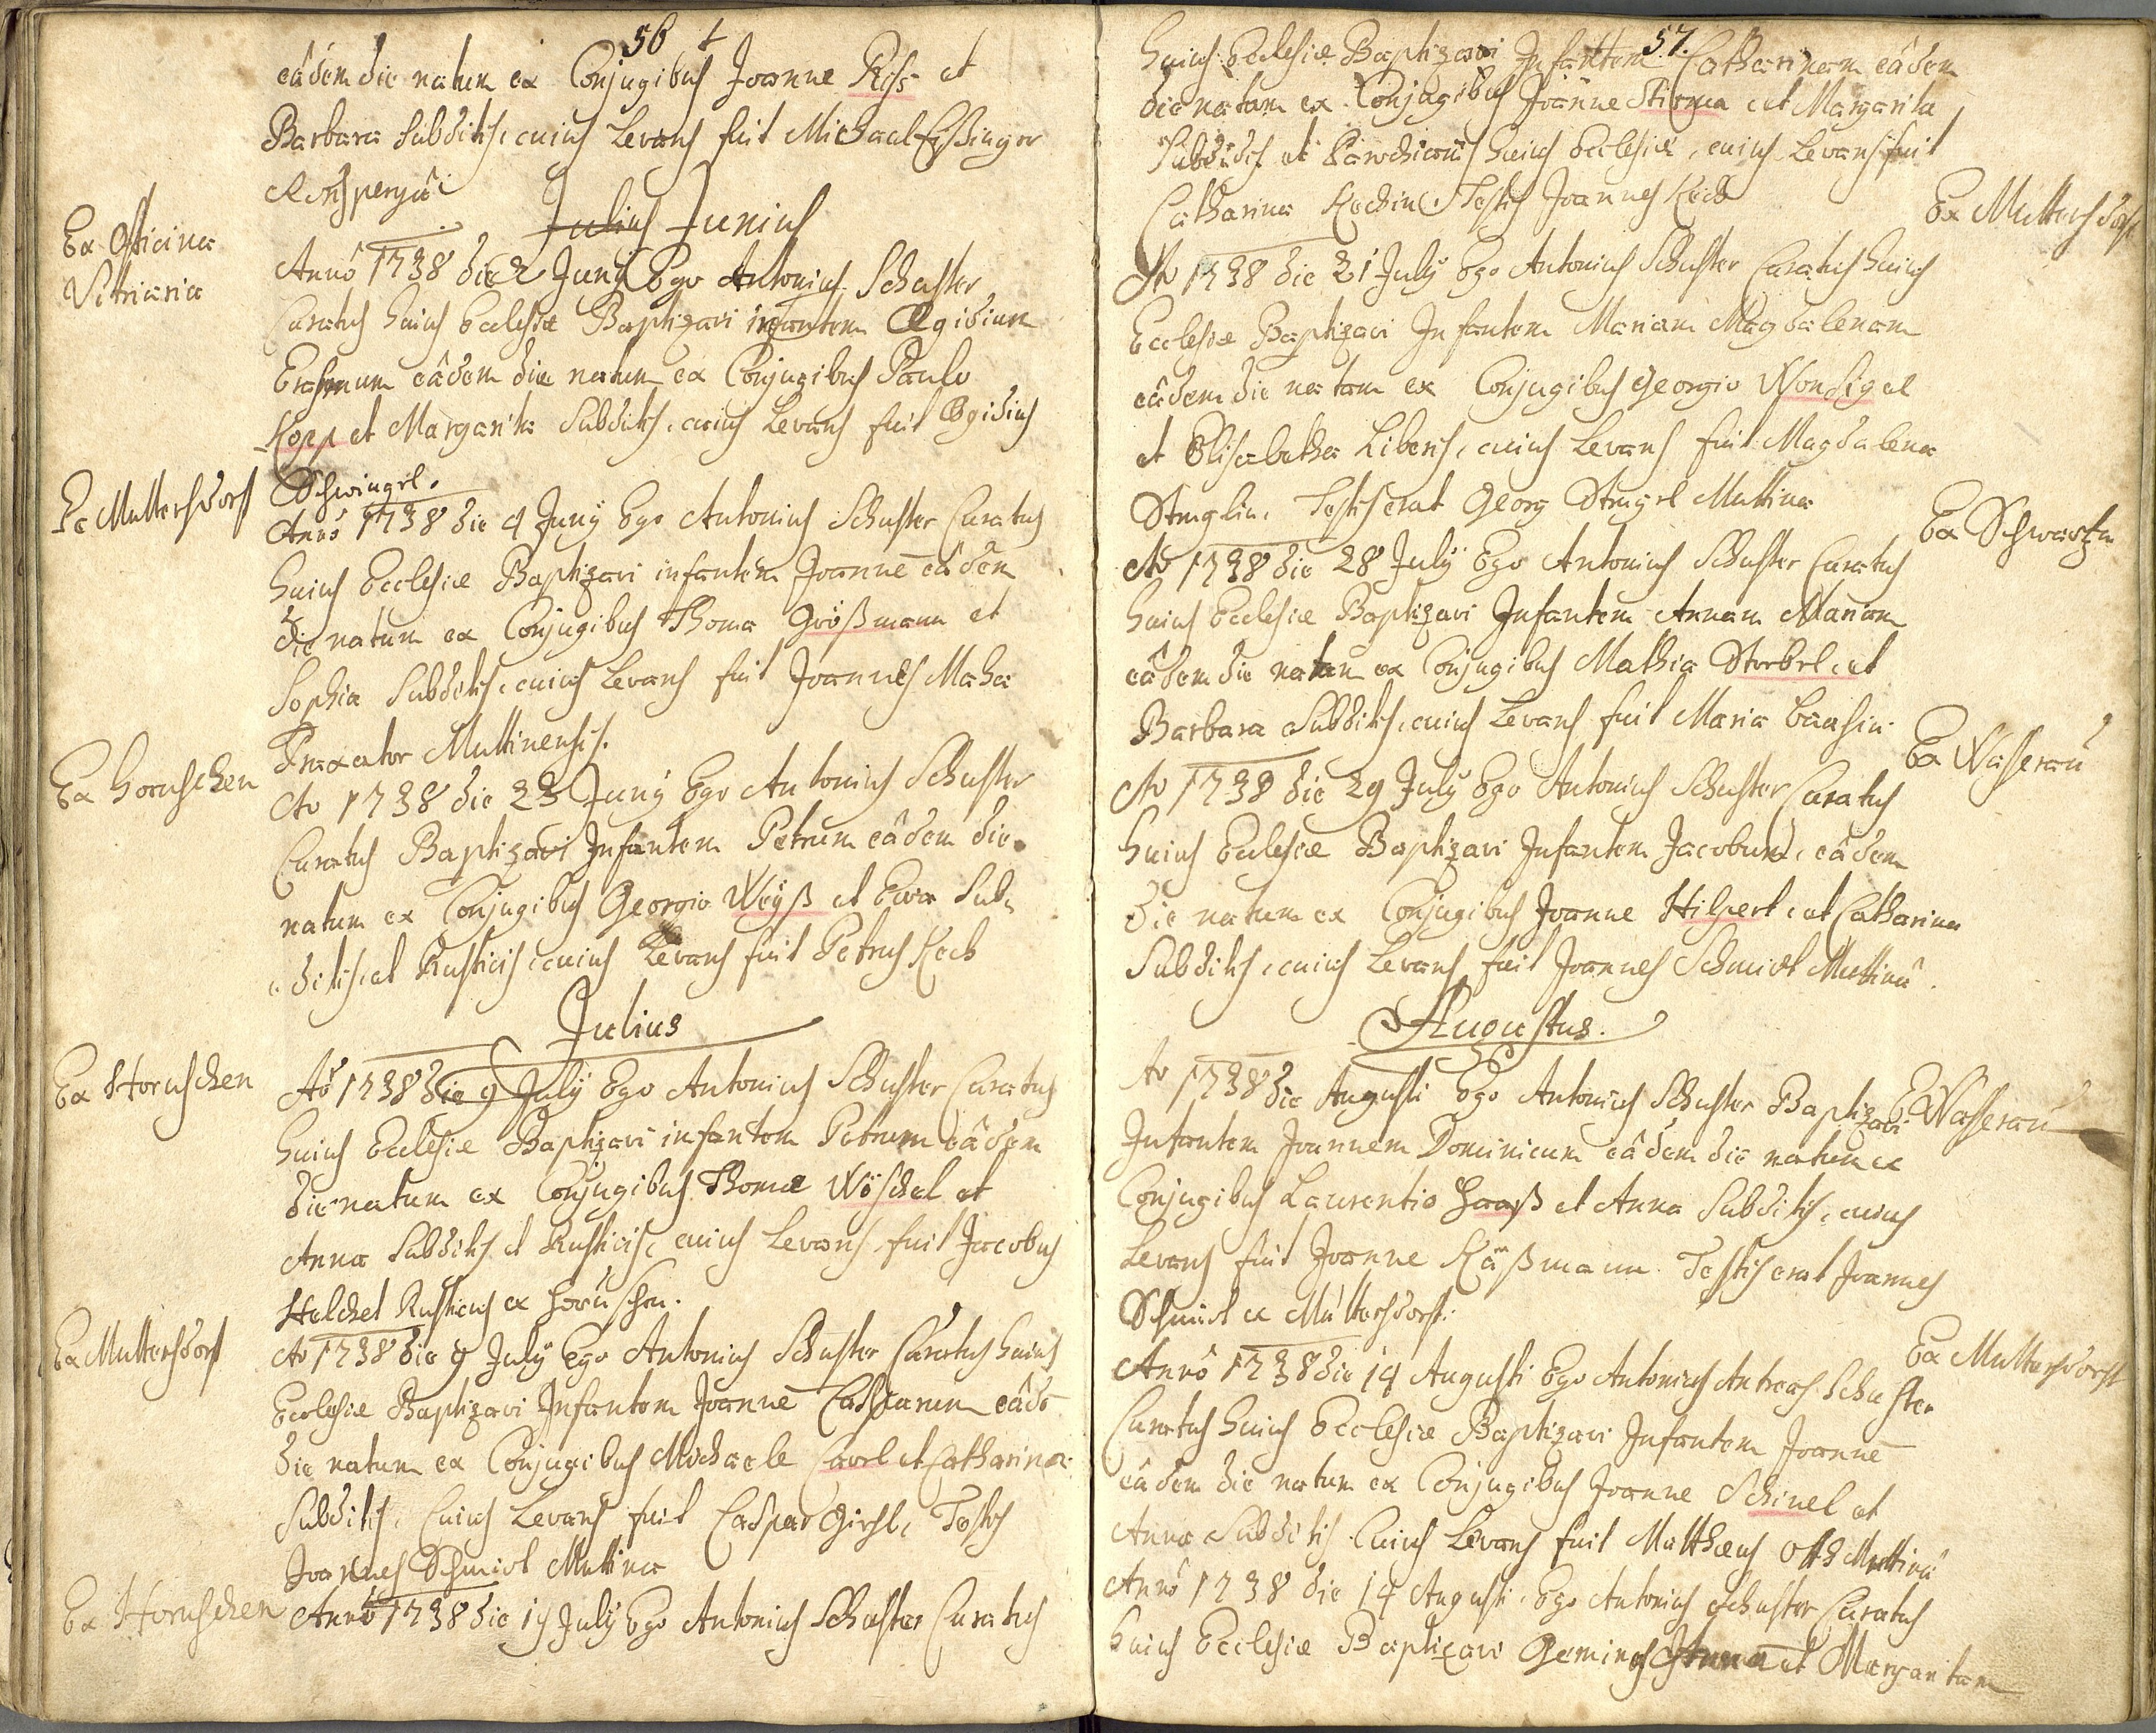 56
eâdem die natum ex Conjugibus Joanne Reß et
Barbara Subditis, cuius Levans fuit Michael
Julius Junius
Ex Officina
Vitriaria
Anno 1738 die 2 Juny Ego Antonius Schuster
Curatus huius Ecclesiæ Baptizavi infantem Ægidium
Erasmum eâdem die natum ex Conjugibus Paulo
Kopp et Margarita Subditis, cuius Levans fuit Ægidius
Schwingel.
Ex Muttersdorf
Anno 1738 die 4 Juny Ego Antonius Schuster Curatus
huius Ecclesiæ Baptizavi infantem Joanne eâdem
die natum ex Conjugibus Thoma Größmann et
Sophia Subditis, cuius Levans fuit Joannes Maha
Braxator Muttinensis.
Ex Hornschen
Ao 1738 die 23 Juny Ego Antonius Schuster
Curatus Baptizavi Infantem Petrum eâdem die
natum ex Conjugibus Georgio Weyß et Eva Sub-
ditis, et Rusticis, cuius Levans fuit Petrus Keck
Julius
Ex Hornschen
Ao 1738 die 9 July Ego Antonius Schuster Curatus
huius Ecclesiæ Baptizavi infantem Petrum eâdem
die natum ex Conjugibus Thoma Wöschel et
Anna Subditis et Rusticis, cuius Levans fuit Jacobus
Holchet Rusticus ex Hornschen.
Ex Muttersdorf
Ao 1738 die 9 July Ego Antonius Schuster Curatus huius
Ecclesiæ Baptizavi Infantem Joanne Casparum eâdē
die natum ex Conjugibus Michaele Cavel et Catharina
Subditis, Cuius Levans fuit Caspar Girgl, Testis
Joannes Schmidt Muttina
Ex Hornschen
Anno 1738 die 19 July Ego Antonius Schuster Curatus
57.
huius Ecclesiæ Baptizavi Infantem Catharinam eâdem
die natam ex Conjugibus Joanne Stirma et Margarita
Subditis et huius Ecclesiæ, cuius Levans fuit
Catharina Keckin. Testis Joannes Keck
Ex Muttersdorf
Ao 1738 die 21 July Ego Antonius Schuster Curatus huius
Ecclesiæ Baptizavi Infantem Mariam Magdalenam
eâdem die natam ex Conjugibus Georgio Wondigel
et Elisabetha Liberis, cuius Levans fuit Magdalena
Stenglin. Testis erat Georg Stengel Muttina
Ex Schwartza
Ao 1738 die 28 July Ego Antonius Schuster Curatus
huius Ecclesiæ Baptizavi Infantem Annam Mariam
eâdem die natam ex Conjugibus Mathia Storbel, et
Barbara Subditis, cuius Levans fuit Maria
Ex Wasserau
Ao 1738 die 29 July Ego Antonius Schuster Curatus
huius Ecclesiæ Baptizavi Infantem Jacobum, eâdem
die natum ex Conjugibus Joanne Hilpert, et Catharina
Subditis, cuius Levans fuit Joannes Schmidt Muttina.
Augustus.
Ex Wasserau
Ao 1738 die Augusti Ego Antonius Schuster Baptizavi
Infantem Joannem Dominicum eâdem die natum ex
Conjugibus Laurentio Haaß et Anna Subditis, cuius
Levans fuit Joanne Käßmann. Testis erat Joannes
Schmidt ex Muttersdorf.
Ex Muttersdorf
Anno 1738 die 14 Augusti Ego Antonius Andreas Schuster
Curatus huius Ecclesiæ Baptizavi Infantem Joanne
eâdem die natum ex Conjugibus Joanne Schinel et
Anna Subditis Cuius Levans fuit Matthæus Otth Muttinā
Anno 1738 die 14 Augusti Ego Antonius Schuster Curatus
huius Ecclesiæ Baptizavi Geminas Anna et Margaritam